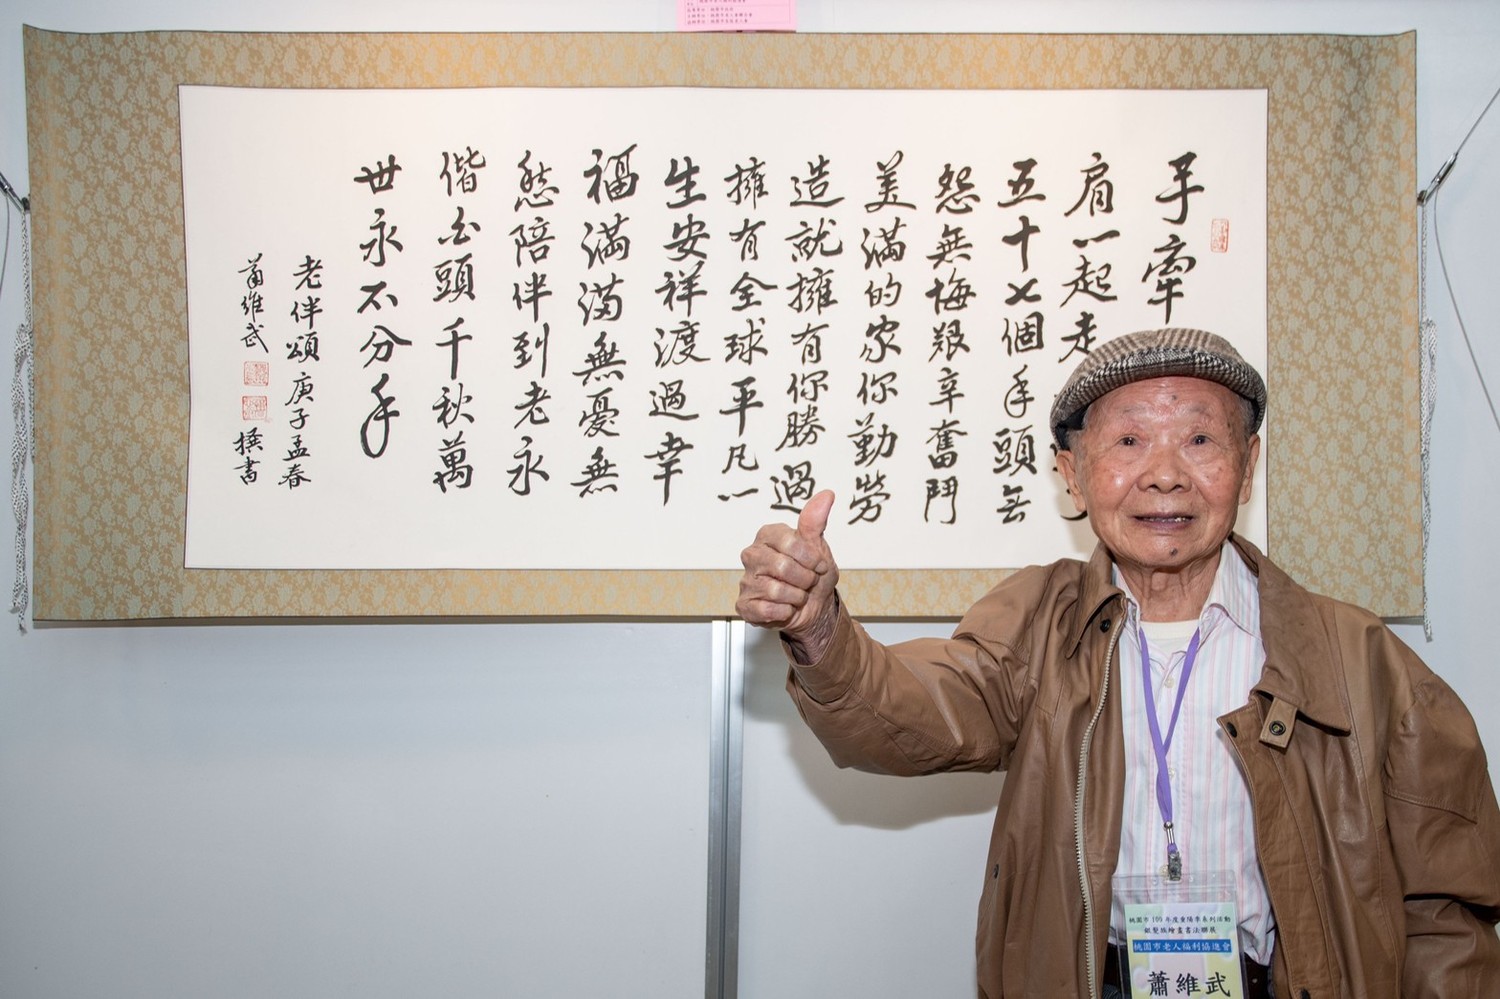 手牽
肩一起走
五十七個年頭無
怨無悔艱辛奮鬥
美滿的家你勤勞
造就擁有你勝過
擁有全球平凡一
生安祥渡過幸
福滿滿無憂無
愁陪伴到老永
偕白頭千秋萬
世永不分手
老伴頌 庚子孟春
蕭維武 撰書
桃園市109年度重陽季系列活動
銀髮族繪畫書法聯展
桃園市老人福利協進會
蕭維武